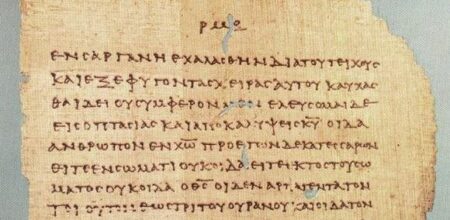 ΕΝ ϹΑΡΓΑΝΗ ΕΧΑΛΑϹΘΗΝ ΔΙΑ ΤΟΥ ΤΕΙΧΟΥϹ
ΚΑΙ ΕΞΕΦΥΓΟΝ ΤΑϹ ΧΕΙΡΑϹ ΑΥΤΟΥ ΚΑΥΧΑϹ
ΘΑΙ ΔΕΙ ΟΥ ϹΥΜΦΕΡΟΝ ΕΛΕΥϹΟΜΑΙ ΔΕ
ΕΙϹ ΟΠΤΑϹΙΑϹ ΚΑΙ ΑΠΟΚΑΛΥΨΕΙϹ Κ̅Υ̅ ΟΙΔΑ
ΑΝΘΡΩΠΟΝ ΕΝ Χ̅Ω̅ ΠΡΟ ΕΤΩΝ ΔΕΚΑΤΕϹϹΑΡΩΝ
ΕΙΤΕ ΕΝ ϹΩΜΑΤΙ ΟΥΚ ΟΙΔΑ ΕΙΤΕ ΕΚΤΟϹ ΤΟΥ ϹΩ
ΜΑΤΟϹ ΟΥΚ ΟΙΔΑ Ο Θ̅Ϲ̅ ΟΙΔΕΝ ΤΟΝ
ΕΩϹ ΤΡΙΤΟΥ ΟΥΡΑΝΟΥ ΚΑΙ ΟΙΔΑ ΤΟΝ